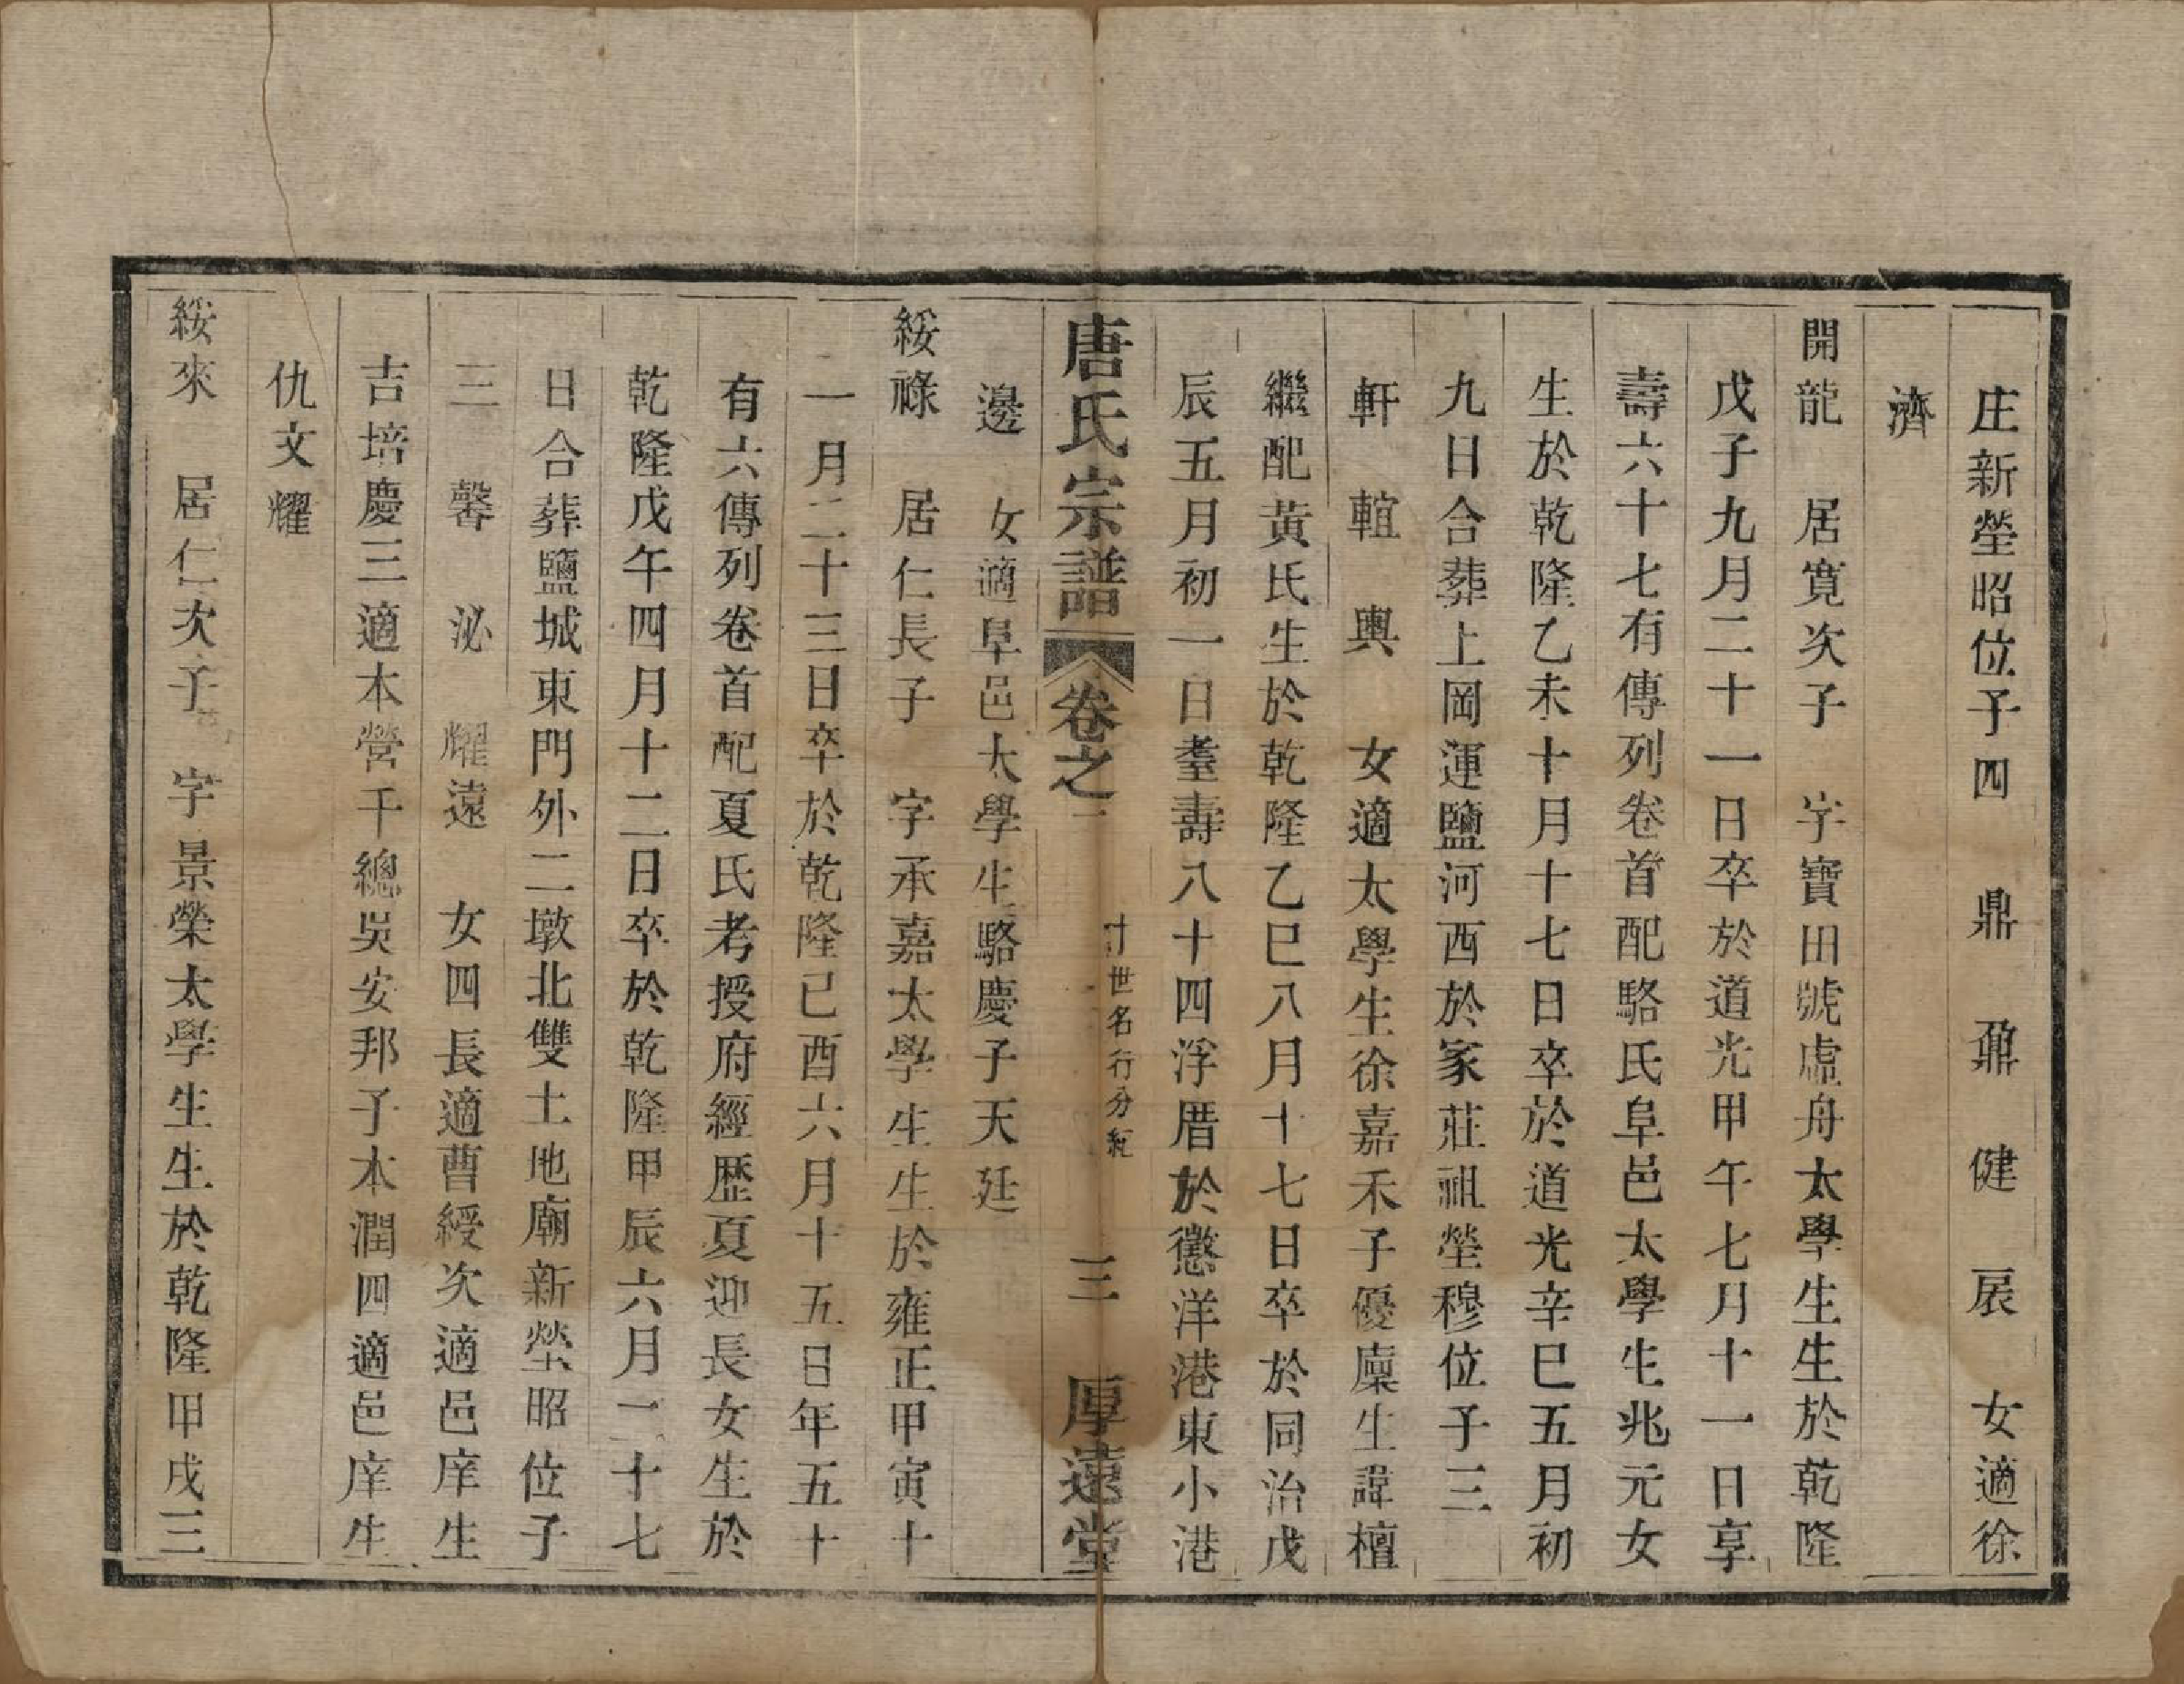 庄新塋昭位子四　鼎　鼐　健　扆　女適徐
濟
開龍　居寬次子　字寶田號虛舟太學生生於乾隆
戊子九月二十一日卒於道光甲午七月十一日享
壽六十七有傳列卷首配駱氏阜邑太學生兆元女
生於乾隆乙未十月十七日卒於道光辛巳五月初
九日合葬上岡運鹽河西於家莊祖塋穆位子三
軒　輨　輿　女適太學生徐嘉禾子優廩生諱檀
繼配黃氏生於乾隆乙巳八月十七日卒於同治戊
辰五月初一日耋壽八十四浮厝於懲洋港東小港
唐氏宗譜　卷之二　十世名行分紀　三　厚遠堂
邊　女適阜邑太學生駱慶子天廷
綏祿　居仁長子　字承嘉太學生生於雍正甲寅十
一月二十三日卒於乾隆己酉六月十五日年五十
有六傳列卷首配夏氏考授府經歷夏迎長女生於
乾隆戊午四月十二日卒於乾隆甲辰六月二十七
日合葬鹽城東門外二墩北雙土地廟新塋昭位子
三　馨　泌　耀遠　女四長適曹綬次適邑庠生
吉培慶三適本營千總吳安邦子本潤四適邑庠生
仇文耀
綏來　居仁次子　字景榮太學生生於乾隆甲戌三